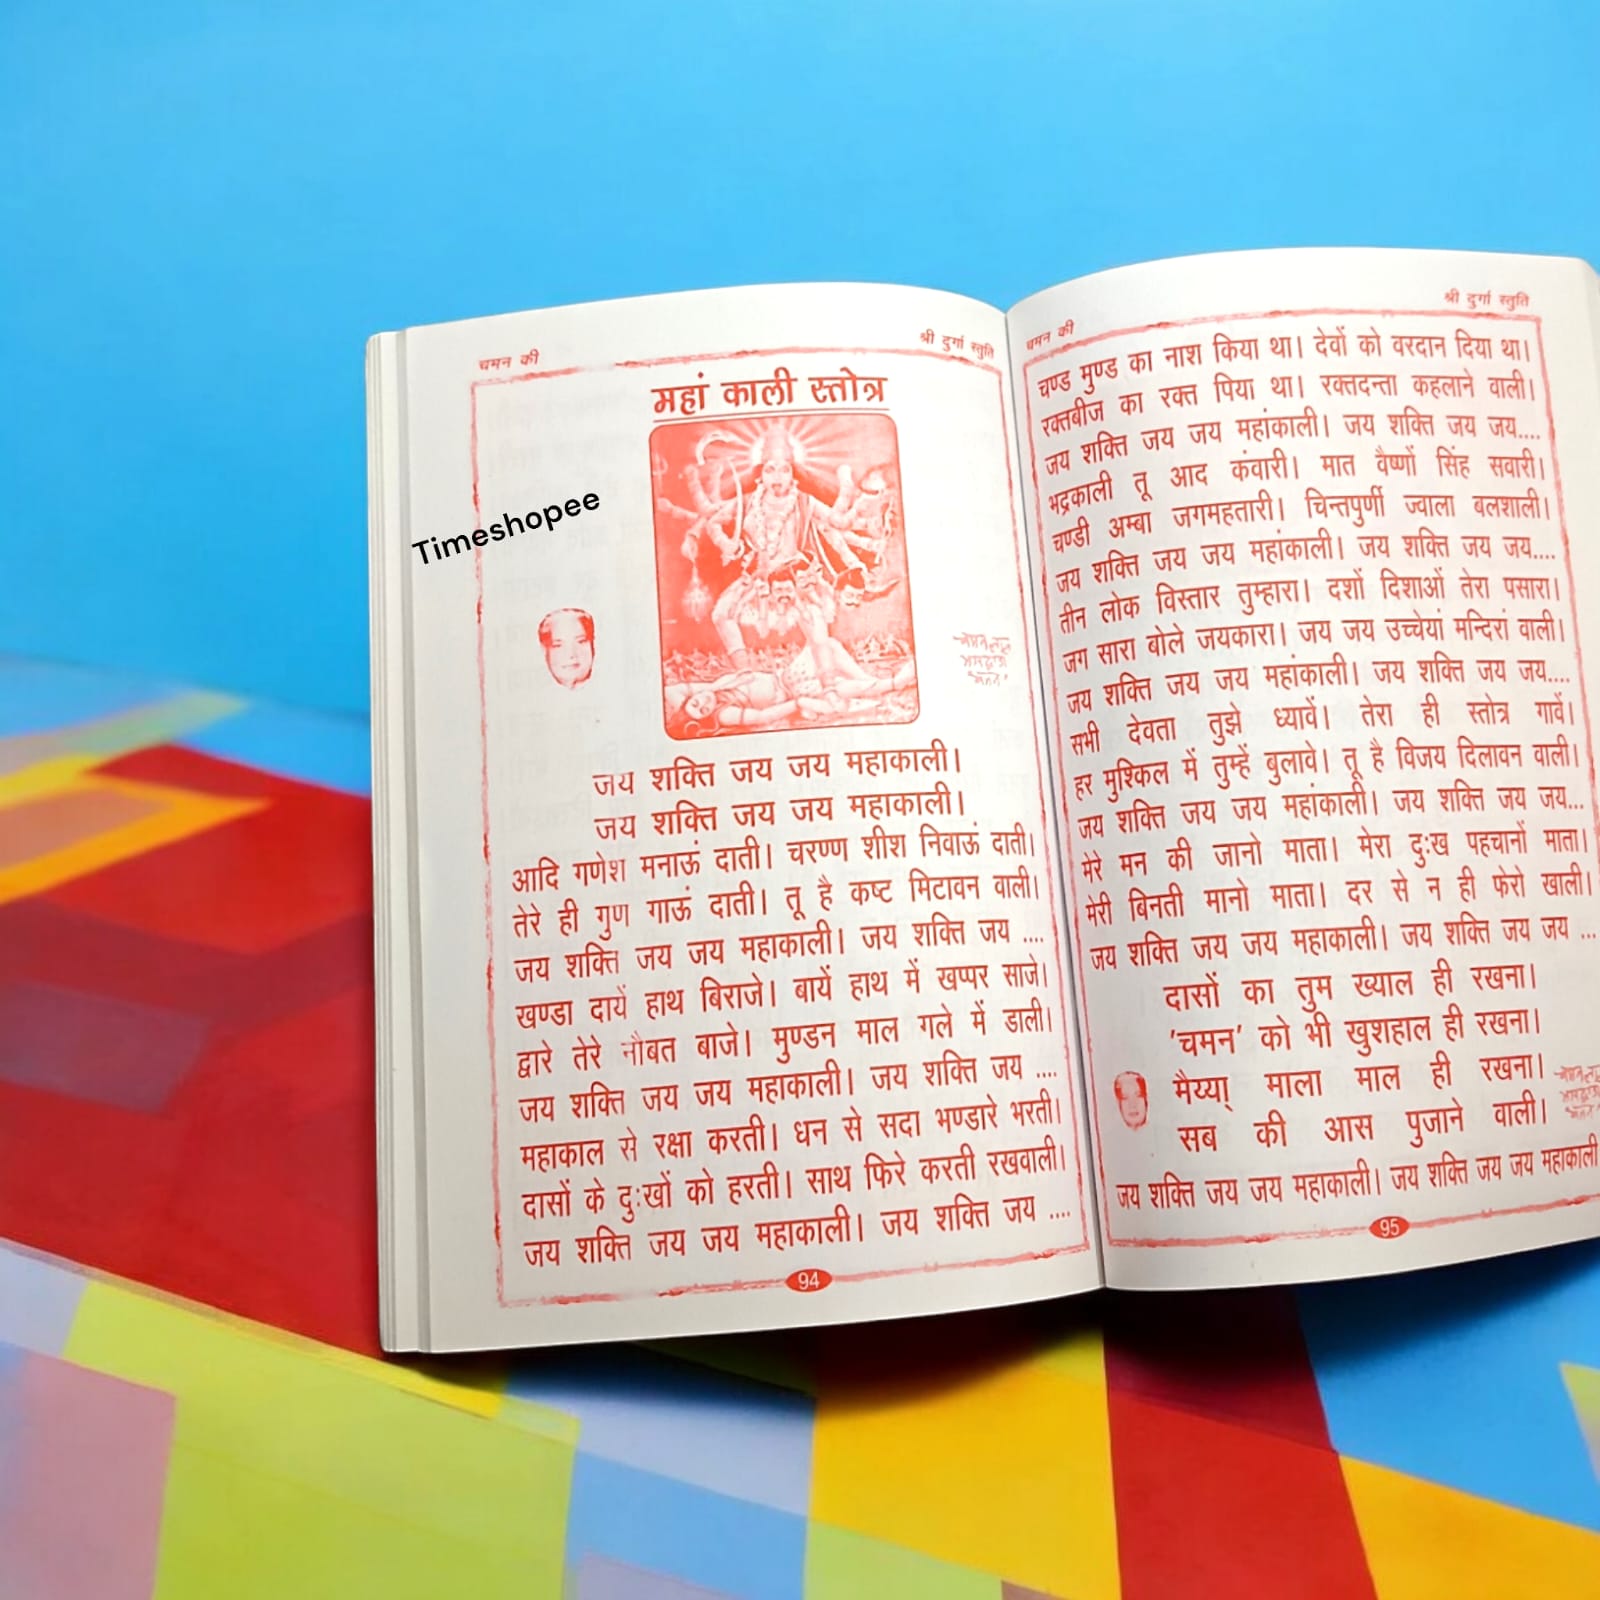 चमन की
श्री दुर्गा स्तुति
महां काली स्तोत्र
Timeshopee
जय शक्ति जय जय महाकाली।
जय शक्ति जय जय महाकाली।
आदि गणेश मनाऊं दाती। चरण्ण शीश निवाऊं दाती।
तेरे ही गुण गाऊं दाती। तू है कष्ट मिटावन वाली।
जय शक्ति जय जय महाकाली। जय शक्ति जय ....
खण्डा दायें हाथ बिराजे। बायें हाथ में खप्पर साजे।
द्वारे तेरे नौबत बाजे। मुण्डन माल गले में डाली।
जय शक्ति जय जय महाकाली। जय शक्ति जय ....
महाकाल से रक्षा करती। धन से सदा भण्डारे भरती।
दासों के दुःखों को हरती। साथ फिरे करती रखवाली।
जय शक्ति जय जय महाकाली। जय शक्ति जय ....
94
चमन की
श्री दुर्गा स्तुति
चण्ड मुण्ड का नाश किया था। देवों को वरदान दिया था।
रक्तबीज का रक्त पिया था। रक्तदन्ता कहलाने वाली।
जय शक्ति जय जय महांकाली। जय शक्ति जय जय....
भद्रकाली तू आद कंवारी। मात वैष्णों सिंह सवारी।
चण्डी अम्बा जगमहतारी। चिन्तपुर्णी ज्वाला बलशाली।
जय शक्ति जय जय महांकाली। जय शक्ति जय जय....
तीन लोक विस्तार तुम्हारा। दशों दिशाओं तेरा पसारा।
जग सारा बोले जयकारा। जय जय उच्चेयां मन्दिरां वाली।
जय शक्ति जय जय महांकाली। जय शक्ति जय जय....
सभी देवता तुझे ध्यावें। तेरा ही स्तोत्र गावें।
हर मुश्किल में तुम्हें बुलावे। तू है विजय दिलावन वाली।
जय शक्ति जय जय महांकाली। जय शक्ति जय जय...
मेरे मन की जानो माता। मेरा दुःख पहचानों माता।
मेरी बिनती मानो माता। दर से न ही फेरो खाली।
जय शक्ति जय जय महाकाली। जय शक्ति जय जय ...
दासों का तुम ख्याल ही रखना।
'चमन' को भी खुशहाल ही रखना।
मैय्या् माला माल ही रखना।
सब की आस पुजाने वाली।
जय शक्ति जय जय महाकाली। जय शक्ति जय जय महाकाली
95